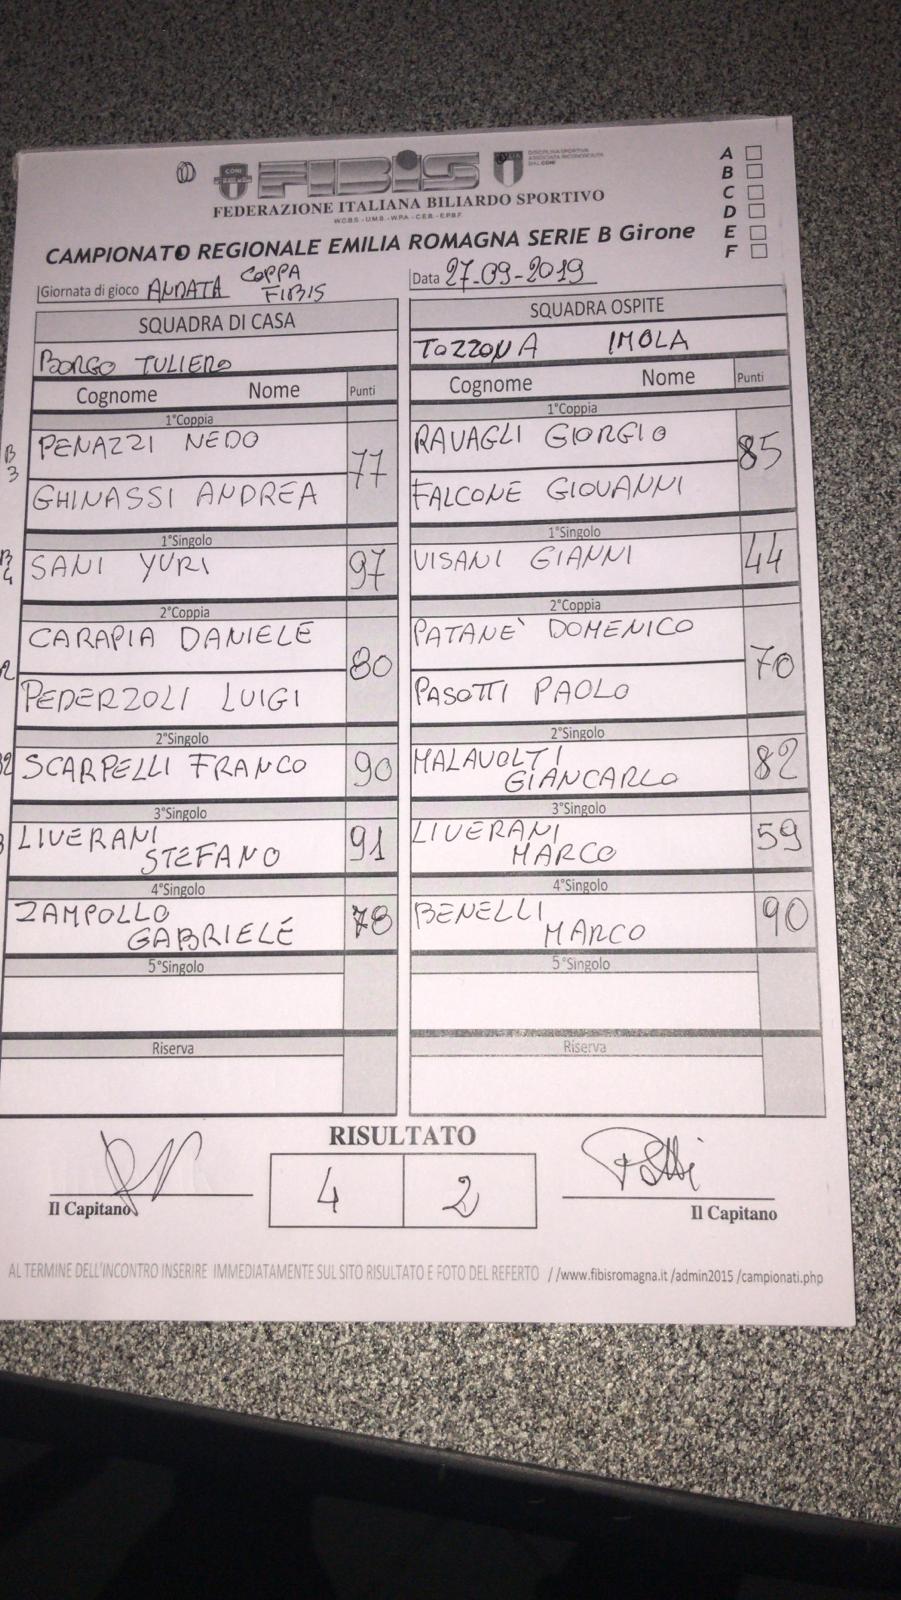 CONI
FIBIS
DISCIPLINA SPORTIVA
ASSOCIATA RICONOSCIUTA
DAL CONI
FEDERAZIONE ITALIANA BILIARDO SPORTIVO
W.C.B.S. - U.M.B. - W.P.A. - C.E.B. - E.P.B.F
CAMPIONATO REGIONALE EMILIA ROMAGNA SERIE B Girone
A
B
C
D
E
F
Giornata di gioco ANDATA COPPA FIBIS
Data 27-09-2019
SQUADRA DI CASA
BORGO TULIERO
Cognome Nome Punti
1°Coppia
B3
PENAZZI NEDO
GHINASSI ANDREA
77
1°Singolo
SANI YURI 97
2°Coppia
CARAPIA DANIELE
PEDERZOLI LUIGI
80
2°Singolo
SCARPELLI FRANCO 90
3°Singolo
LIVERANI
STEFANO
91
4°Singolo
ZAMPOLLO
GABRIELE
78
5°Singolo
Riserva
SQUADRA OSPITE
TOZZONA IMOLA
Cognome Nome Punti
1°Coppia
RAVAGLI GIORGIO
FALCONE GIOVANNI
85
1°Singolo
VISANI GIANNI 44
2°Coppia
PATANE' DOMENICO
PASOTTI PAOLO
70
2°Singolo
MALAVOLTI
GIANCARLO
82
3°Singolo
LIVERANI
MARCO
59
4°Singolo
BENELLI
MARCO
90
5°Singolo
Riserva
RISULTATO
4 2
Il Capitano
Il Capitano
AL TERMINE DELL'INCONTRO INSERIRE IMMEDIATAMENTE SUL SITO RISULTATO E FOTO DEL REFERTO //www.fibisromagna.it /admin2015 /campionati.php